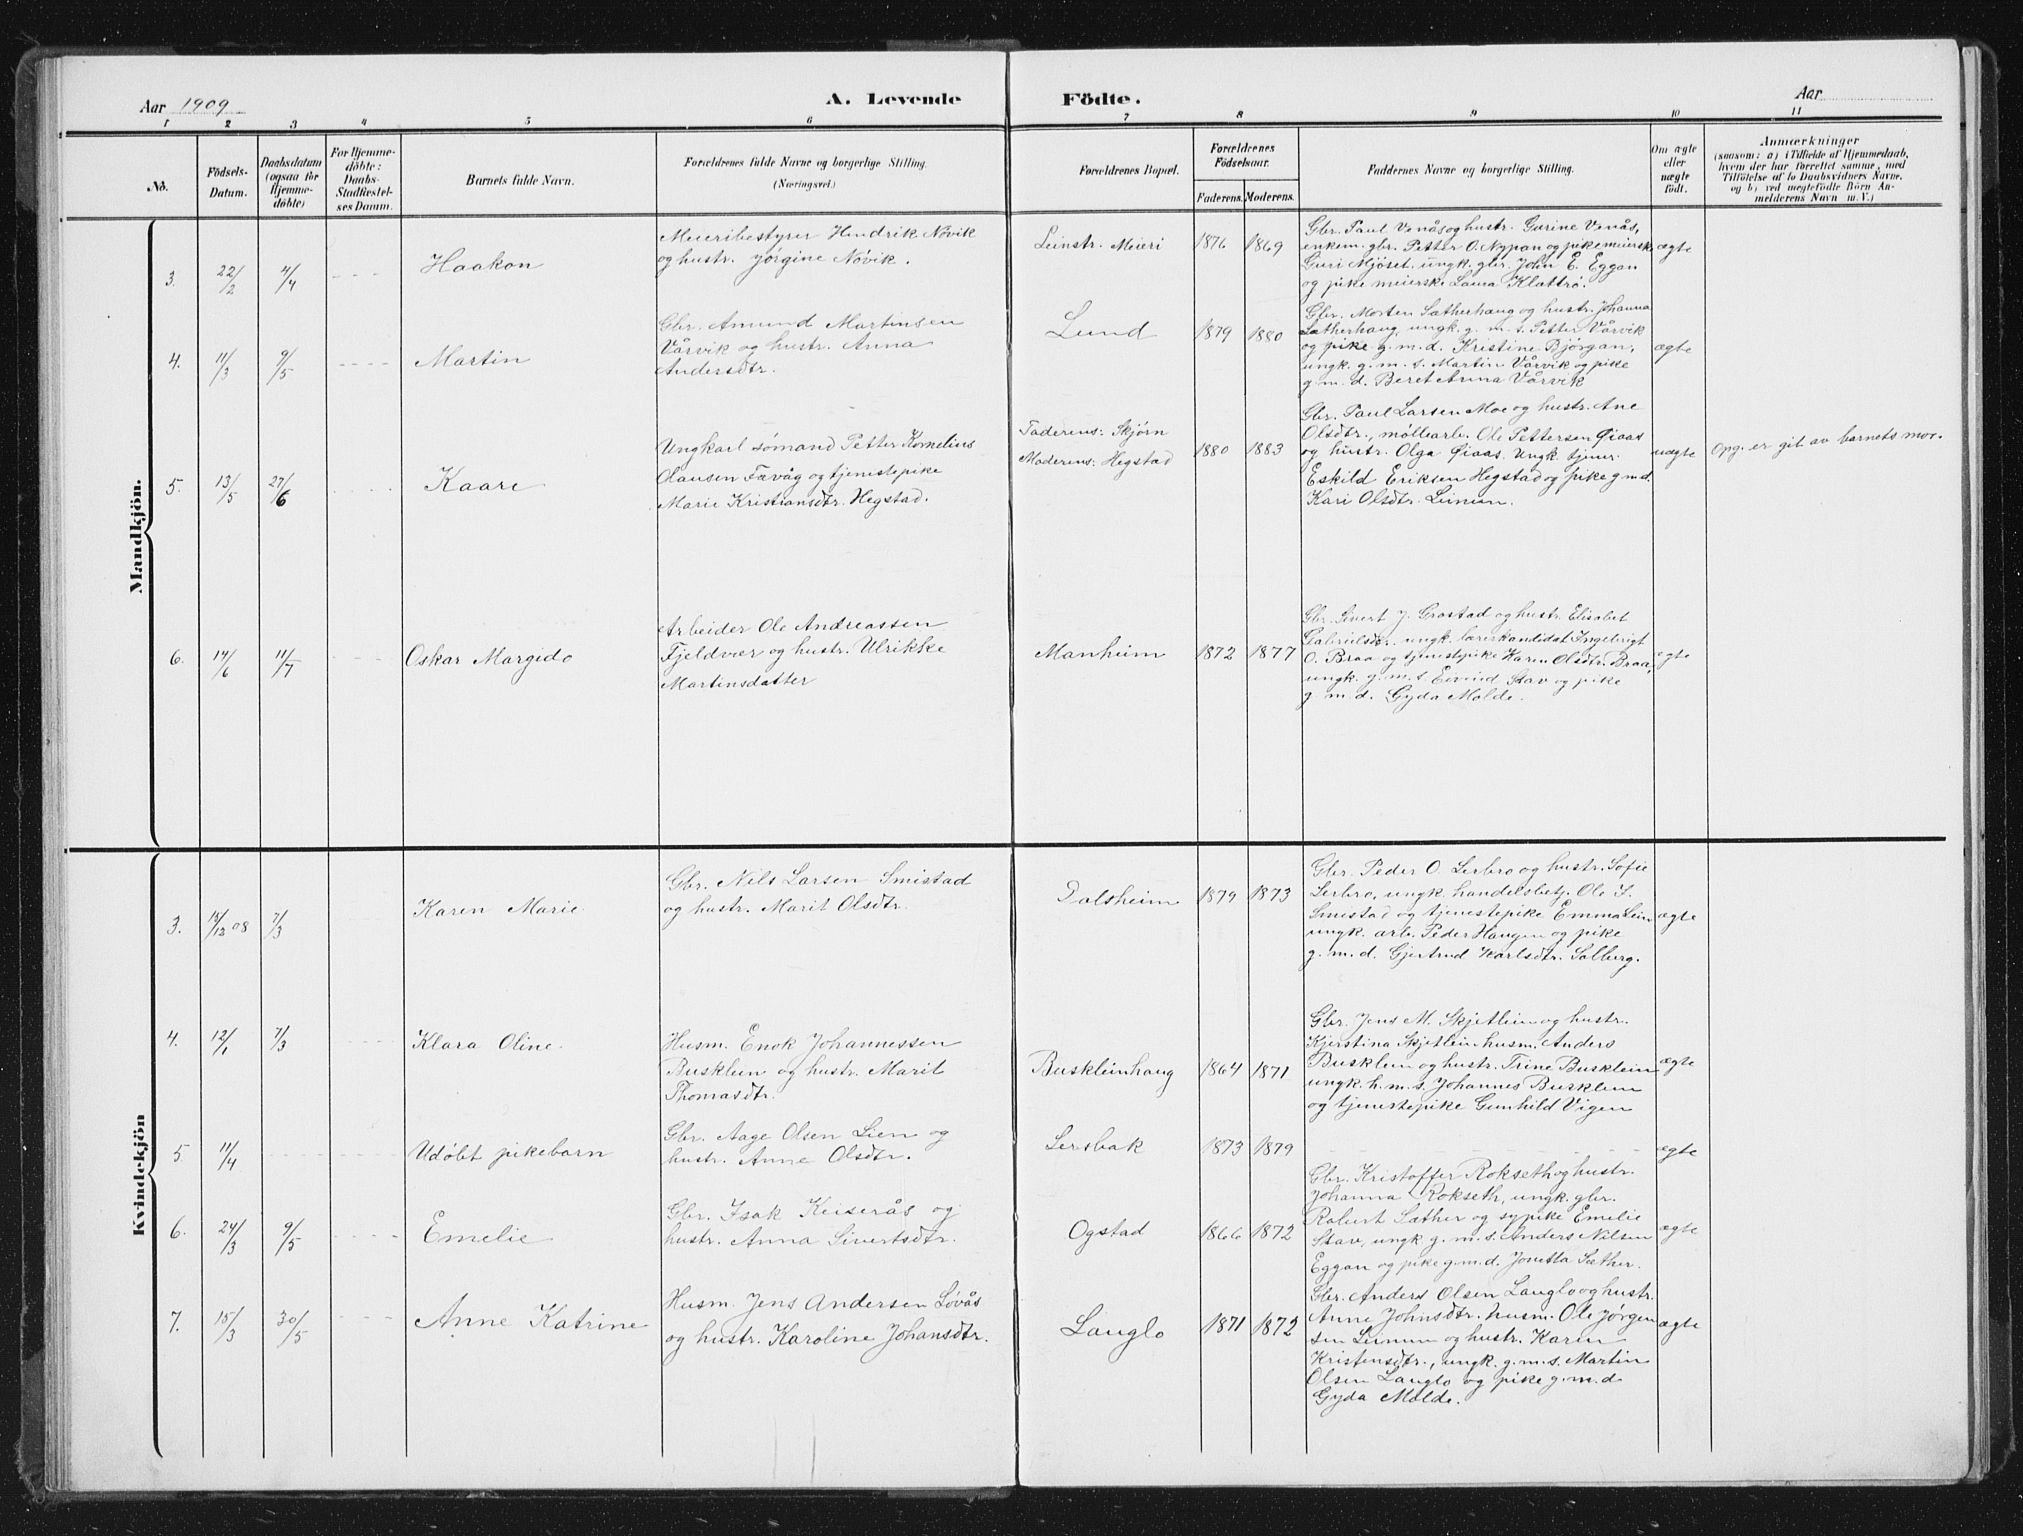 Aar 1909
A. Levende
Födte.
Aar
1 2 3 4 5 6 7 8 9 10 11
No.
Födsels-
Datum.
Daabsdatum
(ogsaa for
Hjemme-
döbte)
For Hjemme-
döbte:
Daabs-
Stadfæstel-
ses Datum.
Barnets fulde Navn.
Forældrenes fulde Navne og borgerlige Stilling.
(Næringsvei.)
Forældrenes Bopæl.
Forældrenes
Födselsaar.
Faderens. Moderens.
Faddernes Navne og borgerlige Stilling.
Om ægte
eller
uægte
født.
Anmærkninger
(saasom: a) i Tilfælde af Hjemmedaab,
hvem der har forrettet samme, med
Tilföielse af to Daabsvidners Navne,
og b) ved uægtefödte Börn An-
melderens Navn m. V.)
Mandkjön.
3. 22/2 4/4
Haakon
Meieribestyrer Hendrik Nóvik
og hustr. Jórgine Nóvik.
Leinstr. Meieri
1876 1869
Gbr. Paul Venås og hustr. Gurine Venås,
enkem. gbr. Petter O. Nypan og pike meierske
Guri Mjóset. ungk. gbr. John E. Eggan
og pike meierske Laura Klattrø.
ægte
4. 11/3 9/5
Martin
Gbr. Amund Martinsen
Vårvik og hustr. Anna
Andersdtr.
Lund
1879 1880
Gbr. Morten Sætherhaug og hustr. Johanna
Sætherhaug, ungk. g. m. s. Petter Vårvik
og pike g. m. d. Kristine Bjórgan,
ungk. g. m. s. Martin Vårvik og pike
g. m. d. Beret Anna Vårvik
ægte
5. 13/5 27/6
Kaare
Ungkarl sómand Petter Kornelius
Olausen Favåg og tjenestepike
Marie Kristiansdtr. Hegstad.
Faderens: Skjórn
Moderens: Hegstad
1880 1883
Gbr. Paul Larsen Moe og hustr. Ane
Olsdtr., móllearb. Ole Pettersen Óiaas
og hustr. Olga Óiaas. Ungk. tjener
Eskild Eriksen Hegstad og pike g.m.d.
Kari Olsdtr. Leinum.
uægte
Opg. er git av barnets mor.
6. 14/6 11/7
Oskar Margido
Arbeider Ole Andreassen
Fjeldvær og hustr. Ulrikke
Martinsdatter
Manheim
1872 1877
Gbr. Sivert J. Grostad og hustr. Elisabet
Gabrielsdtr. ungk. lærerkandidat Ingebrigt
O. Braa og tjenestepike Karen Olsdtr. Braa,
ungk. g. m. s. Eivind Stav og pike
g. m. d. Gyda Molde.
ægte
Kvindekjön
3. /12 08 7/3
Karen Marie
Gbr. Nils Larsen Smistad
og hustr. Marit Olsdtr.
Dalsheim
1879 1873
Gbr. Peder O. Lerbro og hustr. Sofie
Lerbro, ungk. handelsbetj. Ole L.
Smistad og tjenestepike Emma Lein
ungk. arb. Peder Haugen og pike
g. m. d. Gjertrud Karlsdtr. Solberg.
ægte
4. 12/1 7/3
Klara Oline
Husm. Enok Johannessen
Busklein og hustr. Marit
Thomasdtr.
Buskleinhaug
1864 1871
Gbr. Jens M. Skjetlein og hustr.
Kjerstina Skjetlein husm. Anders
Busklein og hustr. Trine Busklein
ungk. h. m. s. Johannes Busklein
og tjenestepike Gunhild Vigen
ægte
5 11/4
Udóbt pikebarn
Gbr. Aage Olsen Lien og
hustr. Anne Olsdtr.
Lersbak
1873 1879
ægte
6. 24/3 9/5
Emelie
Gbr. Isak Keiserås og
hustr. Anna Sivertsdtr.
Ogstad
1866 1872
Gbr. Kristoffer Rokseth og hustr.
Johanna Rokseth, ungk. gbr.
Robert Sæther og sypike Emelie
Stav, ungk. g. m. s. Anders Nilsen
Eggan og pike g. m. d. Jonetta Sæther.
ægte
7. 15/3 30/5
Anne Katrine
Husm. Jens Andersen Lóvås
og hustr. Karoline Johansdtr.
Langlo
1871 1872
Gbr. Anders Olsen Langlo og hustr.
Anne Johnsdtr. husm. Ole Jórgen
sen Leinum og hustr. Karen
Kristensdtr., ungk. g. m. s. Martin
Olsen Langlo og pike g. m. d
Gyda Molde.
ægte